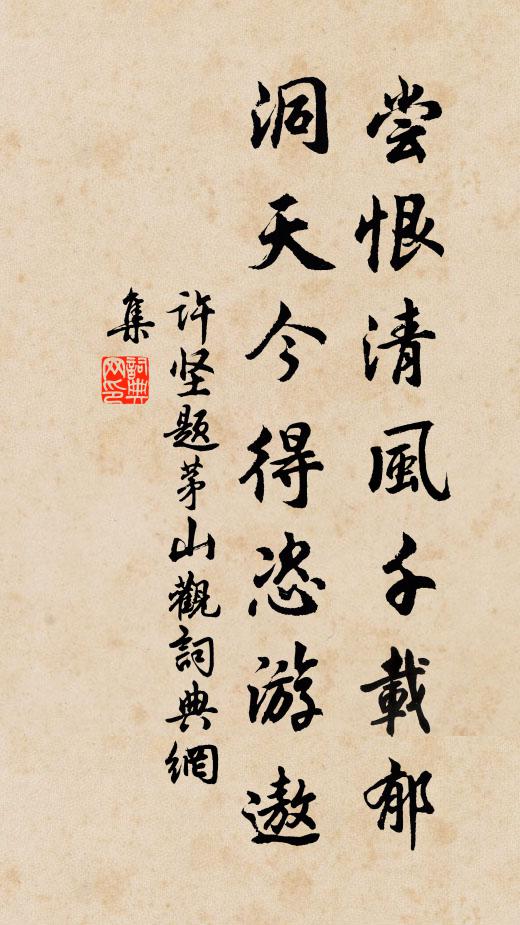 尝恨清風千載郁
洞天今得恣游遨
许坚题茅山觀詞典網
集
詞典网印